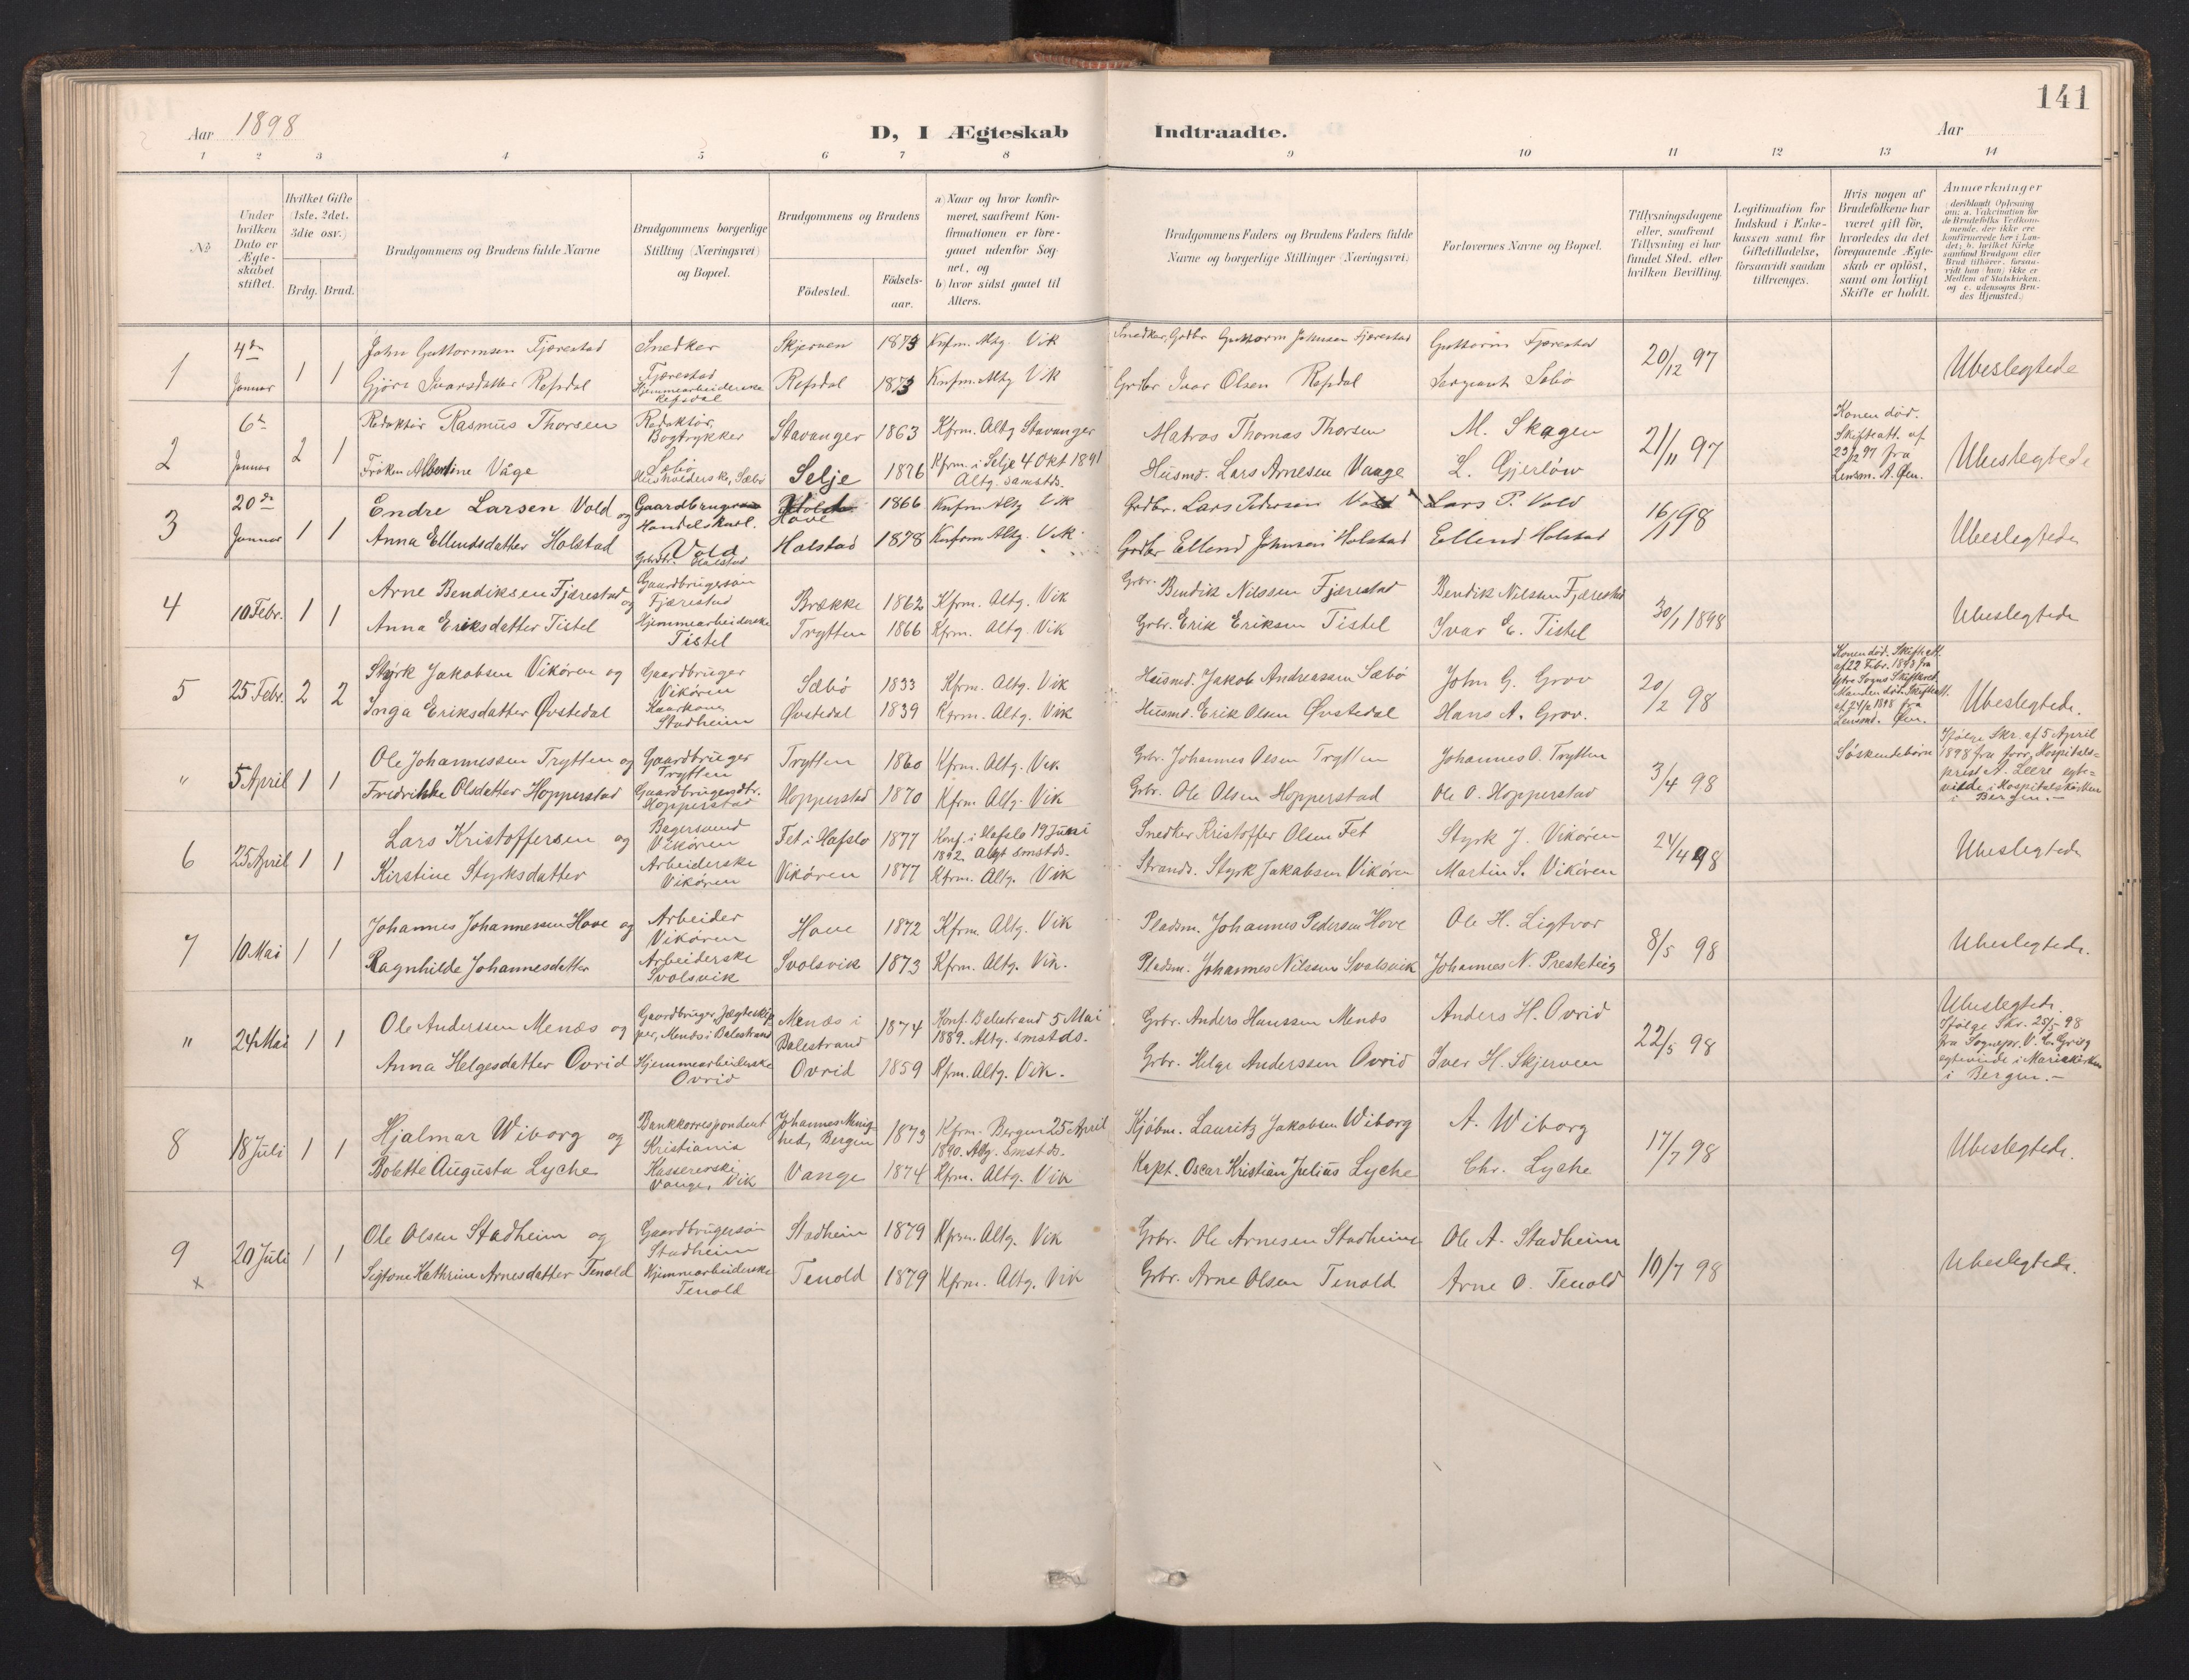 141
Aar 1898
D, I Ægteskab Indtraadte.
Aar
1 2 3 4 5 6 7 8 9 10 11 12 13 14
No
Under hvilken Dato er Ægteskabet stiftet.
Hvilket Gifte (1ste, 2det, 3die osv.)
Brdg. Brud.
Brudgommens og Brudens fulde Navne
Brudgommens borgerlige Stilling (Næringsvei) og Bopæl.
Brudgommens og Brudens
Fødested.
Fødsels-aar.
a) Naar og hvor konfirmeret, saafremt Konfirmationen er foregaaet udenfor Sognet, og
b) hvor sidst gaaet til Alters.
Brudgommens Faders og Brudens Faders fulde Navne og borgerlige Stillinger (Næringsvei)
Forlovernes Navne og Bopæl.
Tillysningsdagene eller, saafremt Tillysning ei har fundet Sted, efter hvilken Bevilling.
Legitimation for Indskud i Enkekassen samt for Giftetilladelse, forsaavidt saadan tiltrænges.
Hvis nogen af Brudefolkene har været gift før, hvorledes da det foregaaende Ægteskab er opløst, samt om lovligt Skifte er holdt.
Anmærkninger (deriblandt Oplysning om: a. Vakcination for de Brudefolks Vedkommende, der ikke ere konfirmerede her i Landet; b. hvilket Kirkesamfund Brudgom eller Brud tilhører, forsaavidt han (hun) ikke er Medlem af Statskirken, og c. udensogns Brudes Hjemsted.)
1 4de Januar 1 1
John Guttormsen Fjærestad Snedker Fjærestad Skjerven 1873 Knfm. Altg. Vik Snedker, Grdbr Guttorm Johnsen Fjærestad Guttorm Fjærestad 20/12 97 Ubeslegtede
Gjöri Ivarsdatter Refsdal Hjemmearbeiderske Refsdal Refsdal 1873 Knfm. Altg Vik Grdbr Ivar Olsen Refsdal Sergeant Sæbö
2 6te Januar 2 1
Redaktør Rasmus Thorsen Redaktør, Bogtrykker Stavanger 1863 Kfrm. Altg Stavanger Matros Thomas Thorsen M. Skagen 21/11 97 Konen død. Skifteatt. af 23/12 97 fra Lensm. A. Øen. Ubeslegtede
Frøken Albertine Våge Husholderske, Sæbö Selje 1876 Kfrm. i Selje 4 Okt 1891 Altg. samstds. Husmd. Lars Arnesen Vaage L. Gjerløw
3 20de Januar 1 1
Endre Larsen Vold og Handelskarl. Vold Hove 1866 Knfrm Altg Vik Grdbr. Lars Pedersen Vold Lars P. Vold 16/1 98 Ubeslegtede
Anna Ellendsdatter Holstad Holstad Holstad 1878 Knform Altg. Vik Grdbr Ellend Johnsen Holstad Ellend Holstad
4 10 Febr. 1 1
Arne Bendiksen Fjærestad og Gaardbrugersön Fjærestad Brække 1862 Kfrm. Altg. Vik Grbr. Bendik Nilssen Fjærestad Bendik Nilssen Fjærestad 30/1 1898 Ubeslegtede
Anna Eriksdatter Tistel Hjemmearbeiderske Tistel Trytten 1866 Kfrm. Altg. Vik Grbr. Erik Eriksen Tistel Ivar E. Tistel
5 25 Febr. 2 2
Styrk Jakobsen Vikören og Gaardbruger Vikören Sæbö 1833 Kfrm. Altg. Vik Husmd. Jakob Andreassen Sæbö John G. Grov 20/2 98 Konen død. Skifteatt. af 22 Febr. 1893 fra Ytre Sogns Skifteret. Manden død. Skifteatt. af 24/2 1898 fra Lensmd. Øen. Ubeslegtede.
Inga Eriksdatter Øvstedal Kaarkone Stadheim Øvstedal 1839 Kfrm. Altg. Vik Husmd. Erik Olsen Øvstedal Hans A. Grov.
" 5 April 1 1
Ole Johannessen Trytten og Gaardbruger Trytten Trytten 1860 Kfrm. Altg. Vik Grbr. Johannes Olsen Trytten Johannes O. Trytten 3/4 98 Söskendebörn Ifølge Skr. af 5 April 1898 fra forr. Hospitalsprest A. Leere egteviede i Hospitalskirken i Bergen.-
Fredrikke Olsdatter Hopperstad Gaardbrugerdtr. Hopperstad Hopperstad 1870 Kfrm Altg. Vik Grbr. Ole Olsen Hopperstad Ole O. Hopperstad
6 25 April 1 1
Lars Kristoffersen og Bagersvend Vikören Fet i Hafslo 1877 Konf. i Hafslo 19 Juni 1892. Altgt smstds. Snedker Kristoffer Olsen Fet Styrk J. Vikören 24/4 98 Ubeslegtede
Kirstine Styrksdatter Arbeiderske Vikören Vikören 1877 Kfrm. Altg. Vik Strands. Styrk Jakobsen Vikören Martin S. Vikören
7 10 Mai 1 1
Johannes Johannessen Hove og Arbeider Vikören Hove 1872 Kfrm. Altg. Vik Pladsm. Johannes Pedersen Hove Ole H. Ligtvor 8/5 98 Ubeslegtede.
Ragnhilde Johannesdatter Arbeiderske Svolsvik Svolsvik 1873 Kfrm. Altg. Vik. Pladsm. Johannes Nilssen Svolsvik Johannes N. Presteteig
" 24 Mai 1 1
Ole Anderssen Menæs og Gaardbruger, Jægteskipper, Menæs i Balestrand Menæs i Balestrand 1874 Konf. Balestrand 5 Mai 1889. Altg. smstds. Grbr. Anders Hanssen Menæs Anders H. Ovrid 22/5 98 Ubeslegtede. Ifølge Skr. 25/5 98 fra Sognepr. V. C. Grieg egteviede i Mariakirken i Bergen.-
Anna Helgesdatter Ovrid Hjemmearbeiderske Ovrid Ovrid 1859 Kfrm. Altg. Vik. Grbr. Helge Anderssen Ovrid Iver H. Skjerven
8 18 Juli 1 1
Hjalmar Wiborg og Bankkorrespondent Kristiania Johannes Menighed, Bergen 1873 Kfrm. Bergen 25 April 1890. Altg. smstds. Kjöbm. Lauritz Jakobsen Wiborg A. Wiborg 17/7 98 Ubeslegtede.
Bolette Augusta Lyche Kassererske, Vange, Vik Vange 1874 Kfrm. Altg. Vik Kapt. Oscar Kristian Julius Lyche Chr. Lyche
9 20 Juli 1 1
Ole Olsen Stadheim og Gaardbrugersön Stadheim Stadheim 1879 Kfrm. Altg. Vik Grbr. Ole Arnesen Stadheim Ole A. Stadheim 10/7 98 Ubeslegtede.
x Sigtone Kathrine Arnesdatter Tenold Hjemmearbeiderske Tenold Tenold 1879 Kfrm. Altg. Vik Grbr. Arne Olsen Tenold Arne O. Tenold